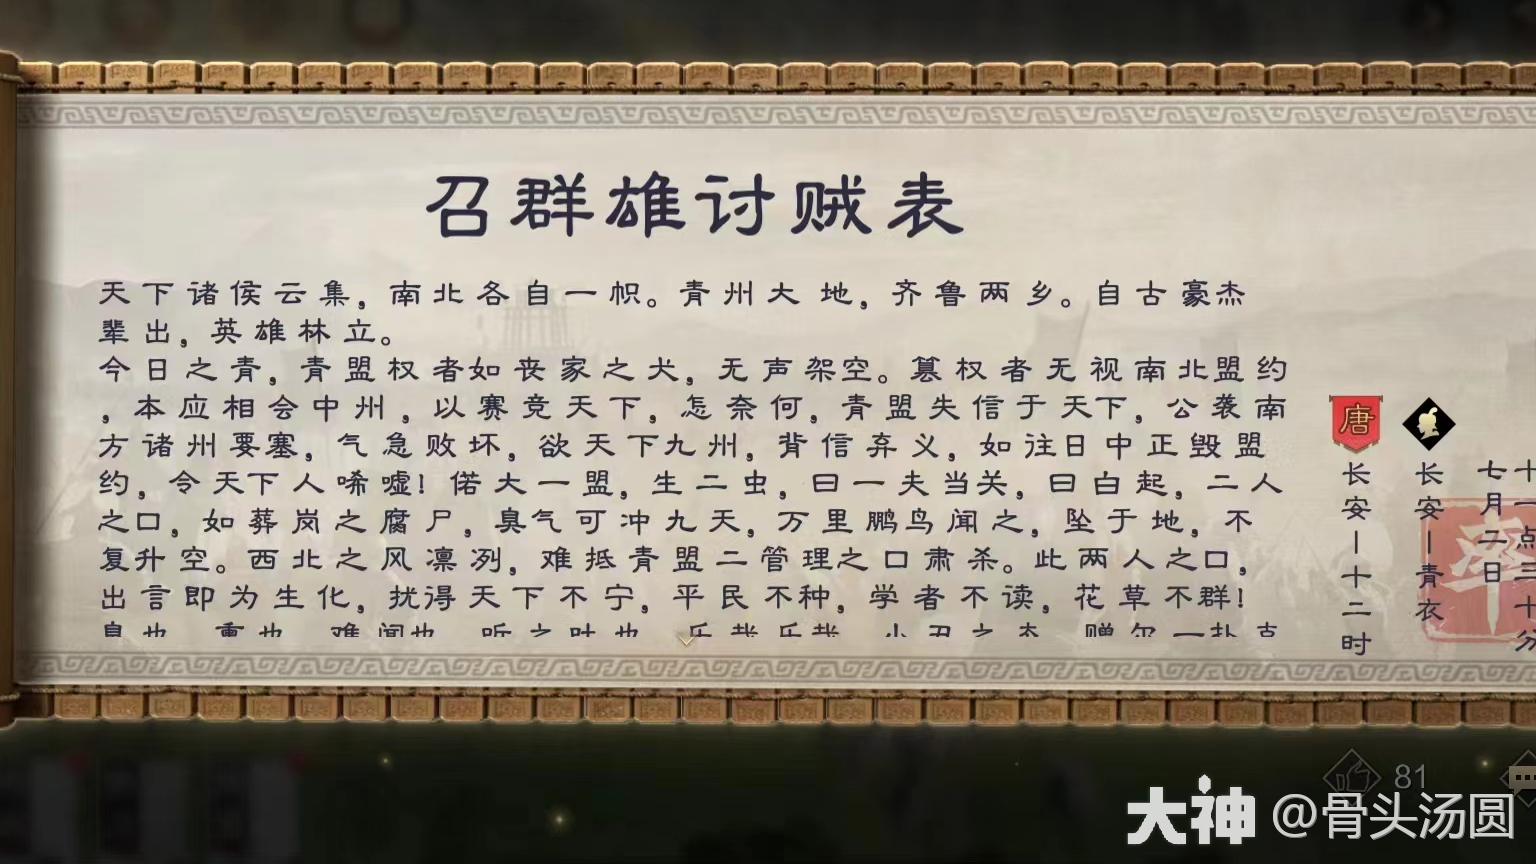 召群雄讨贼表
天下诸侯云集，南北各自一帜。青州大地，齐鲁两乡。自古豪杰
辈出，英雄林立。
今日之青，青盟权者如丧家之犬，无声架空。篡权者无视南北盟约
，本应相会中州，以赛竞天下，怎奈何，青盟失信于天下，公袭南
方诸州要塞，气急败坏，欲天下九州，背信弃义，如往日中正毁盟
约，令天下人唏嘘！偌大一盟，生二虫，曰一夫当关，曰白起，二人
之口，如葬岗之腐尸，臭气可冲九天，万里鹏鸟闻之，坠于地，不
复升空。西北之风凛冽，难抵青盟二管理之口肃杀。此两人之口，
出言即为生化，扰得天下不宁，平民不种，学者不读，花草不群！
唐
长安-十二时
长安-青衣
七月二日
十一点三十分
率
81
大神 @骨头汤圆